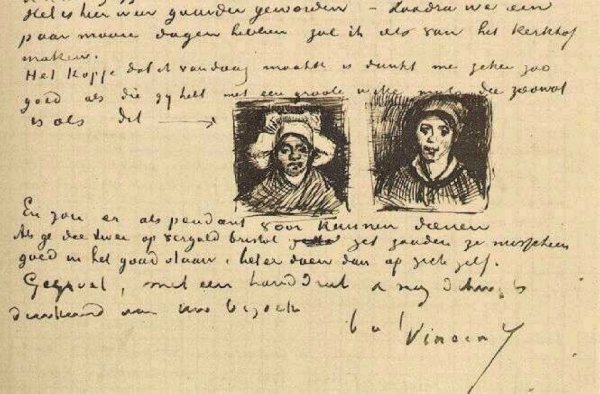 Het is hier weer guurder geworden – Zoodra we een
paar mooie dagen hebben zal ik iets van het kerkhof
maken.
Het kopje dat ik vandaag maakte is dunkt me zeker zoo
goed als die gij hebt met een groote witte muts die zoowat
is als dit
En zou er als pendant voor kunnen dienen
Als ge die twee op verguld bristol zet zouden ze misschien
goed in het goud staan, beter doen dan op zich zelf.
Gegroet, met een handdruk & nog
dankend van uw bezoek
t. à t.
Vincent